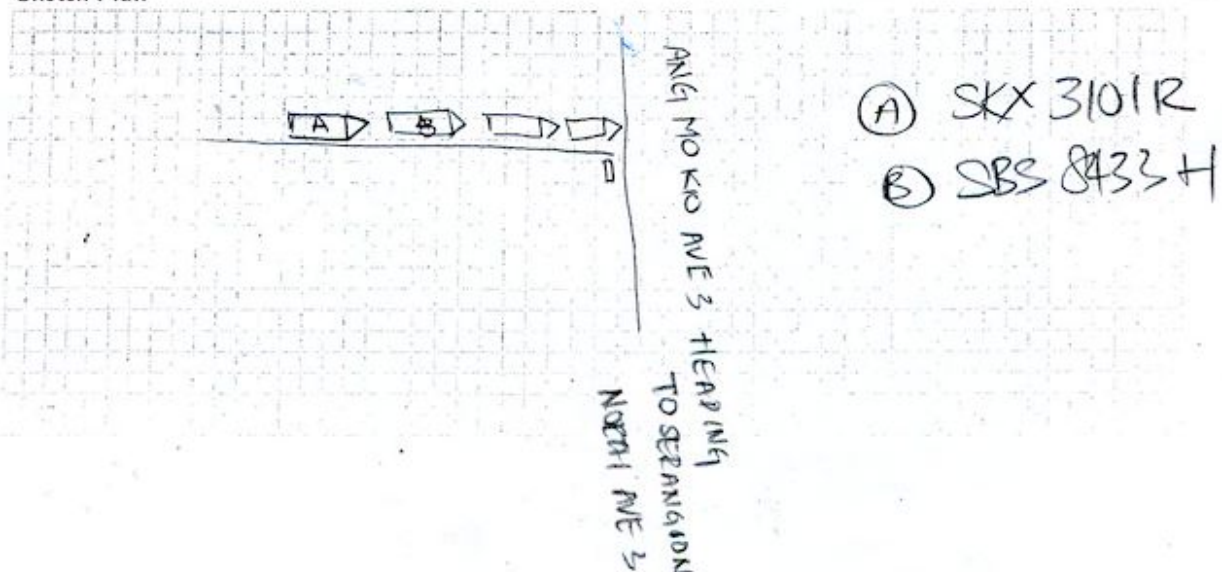 A
B
ANG MO KIO AVE 3 HEADING
TO SERANGOON
NORTH AVE 3
Ⓐ SKX 3101R
Ⓑ SBS 8433H